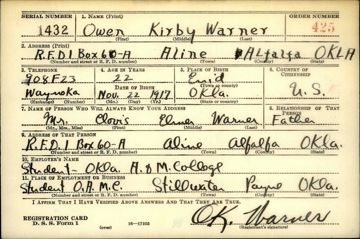 SERIAL NUMBER 1. NAME (Print) ORDER NUMBER
1432 Owen Kirby Warner 425
(First) (Middle) (Last)
2. ADDRESS (Print)
R.F.D.1 Box 60-A Aline Alfalfa OKLA
(Number and street or R. F. D. number) (Town) (County) (State)
3. TELEPHONE 4. AGE IN YEARS 5. PLACE OF BIRTH 6. COUNTRY OF CITIZENSHIP
708F23 22 Enid
Waynoka DATE OF BIRTH Nov. 22 1917 Okla. U.S.
(Exchange) (Number) (Mo.) (Day) (Yr.) (State or country)
7. NAME OF PERSON WHO WILL ALWAYS KNOW YOUR ADDRESS 8. RELATIONSHIP OF THAT PERSON
Mr. Clovis Elmer Warner Father
(Mr., Mrs., Miss) (First) (Middle) (Last)
9. ADDRESS OF THAT PERSON
R.F.D.1 Box 60-A Aline Alfalfa Okla.
(Number and street or R. F. D. number) (Town) (County) (State)
10. EMPLOYER'S NAME
Student - Okla. A. & M. College
11. PLACE OF EMPLOYMENT OR BUSINESS
Student O.A.M.C. Stillwater Payne Okla.
(Number and street or R. F. D. number) (Town) (County) (State)
I AFFIRM THAT I HAVE VERIFIED ABOVE ANSWERS AND THAT THEY ARE TRUE.
REGISTRATION CARD
D. S. S. Form 1 (over) O.K. Warner
(Registrant's signature)